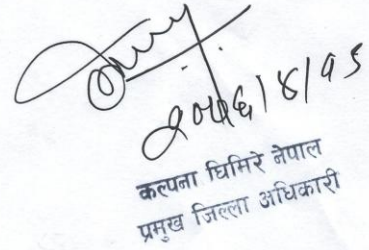 २०७६।४।१५
कल्पना घिमिरे नेपाल
प्रमुख जिल्ला अधिकारी